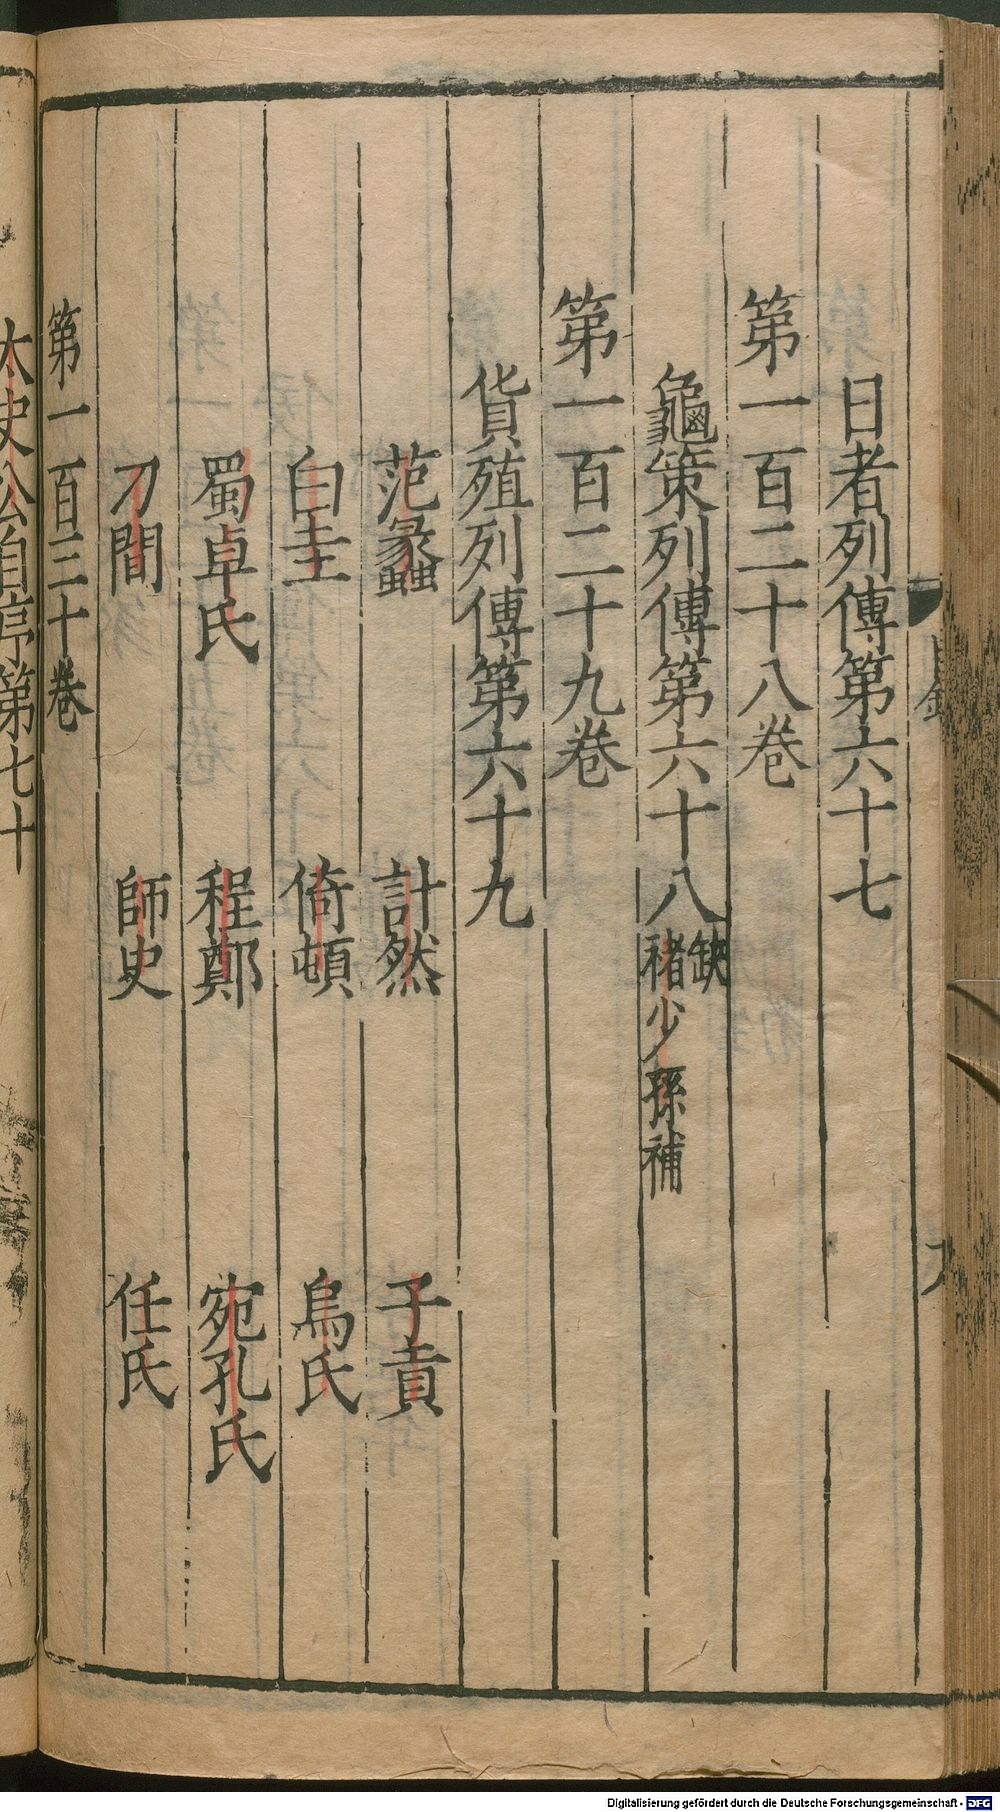 日者列傳第六十七
第一百二十八卷
龜策列傳第六十八 缺 褚少孫補
第一百二十九卷
貨殖列傳第六十九
范蠡 計然 子貢
白圭 倚頓 烏氏
蜀卓氏 程鄭 宛孔氏
刀間 師史 任氏
第一百三十卷
太史公自序第七十
Digitalisierung gefördert durch die Deutsche Forschungsgemeinschaft - DFG